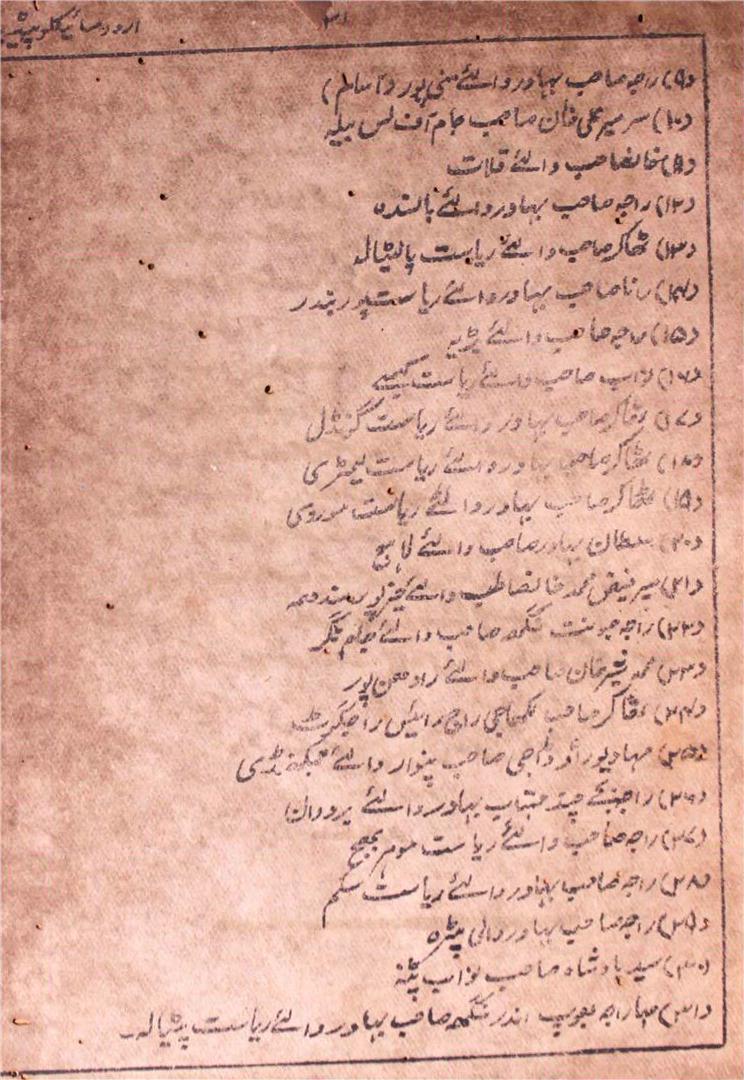 ۳۱
(۹) راجہ صاحب بہادر والئے منی پور (آسام)
(۱۰) سر میر خان صاحب جام آف لس بیلہ
(۱۱) خانصاحب والئے قلات
(۱۲) راجہ صاحب بہادر والئے بالسندہ
(۱۳) ٹھاکر صاحب والئے ریاست پالیٹالہ
(۱۴) رانا صاحب بہادر والئے ریاست پوربندر
(۱۵) راجہ صاحب والئے
(۱۶) نواب صاحب والئے ریاست
(۱۷) ٹھاکر صاحب بہادر والئے ریاست گونڈل
(۱۸) ٹھاکر صاحب بہادر والئے ریاست لیمڑی
(۱۹) ٹھاکر صاحب بہادر والئے ریاست موروی
(۲۰) سلطان بہادر صاحب والئے لاہج
(۲۱) میر فیض محمد خانصاحب والئے خیرپور سندھ
(۲۲) راجہ جسونت سنگھ صاحب والئے جام نگر
(۲۳) محمد شیر خان صاحب والئے رادھن پور
(۲۴) ٹھاکر صاحب راج رائیس راجکوٹ
(۲۵) صاحب پنوار والئے
(۲۶) چند مہتاب بہادر والئے بردوان
(۲۷) راجہ صاحب والئے ریاست مور بھنج
(۲۸) راجہ صاحب بہادر والئے ریاست سکم
(۲۹) راجہ صاحب بہادر والی پٹڑہ
(۳۰) سید بادشاہ صاحب نواب پٹنہ
(۳۱) مہاراجہ بھوپ اندر سنگھ صاحب بہادر والئے ریاست پٹیالہ۔